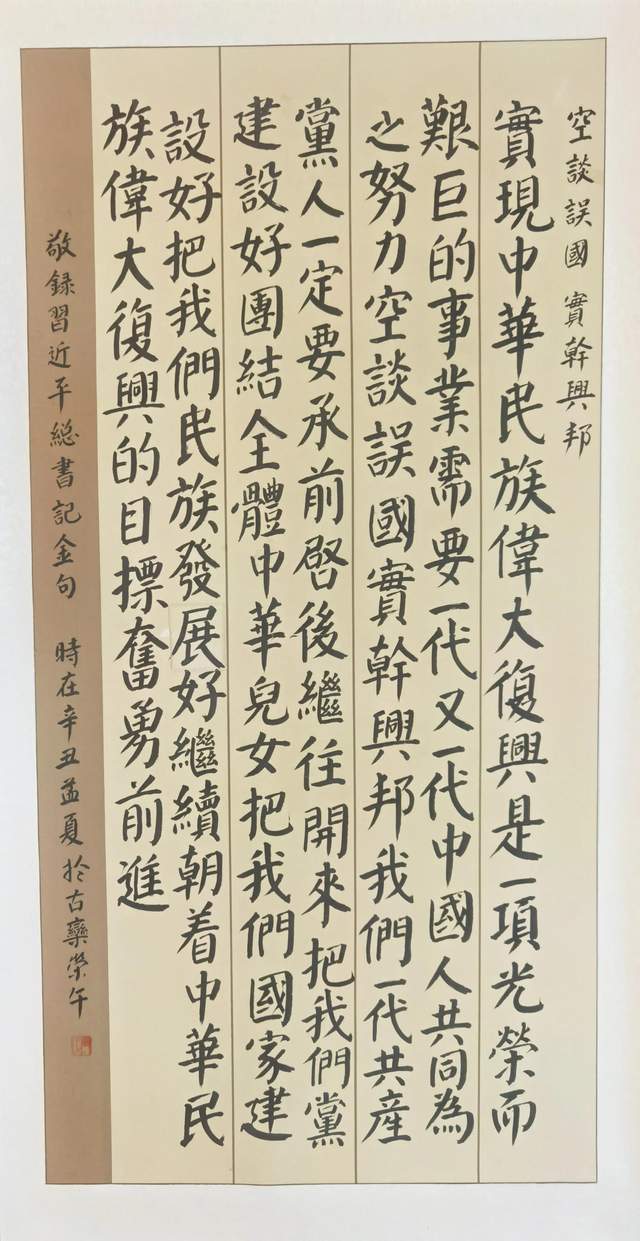 空談誤國 實幹興邦
實現中華民族偉大復興是一項光榮而
艱巨的事業需要一代又一代中國人共同為
之努力空談誤國實幹興邦我們一代共産
黨人一定要承前啓後繼往開來把我們黨
建設好團結全體中華兒女把我們國家建
設好把我們民族發展好繼續朝着中華民
族偉大復興的目摽奮勇前進
敬録習近平總書記金句 時在辛丑孟夏於古欒榮午